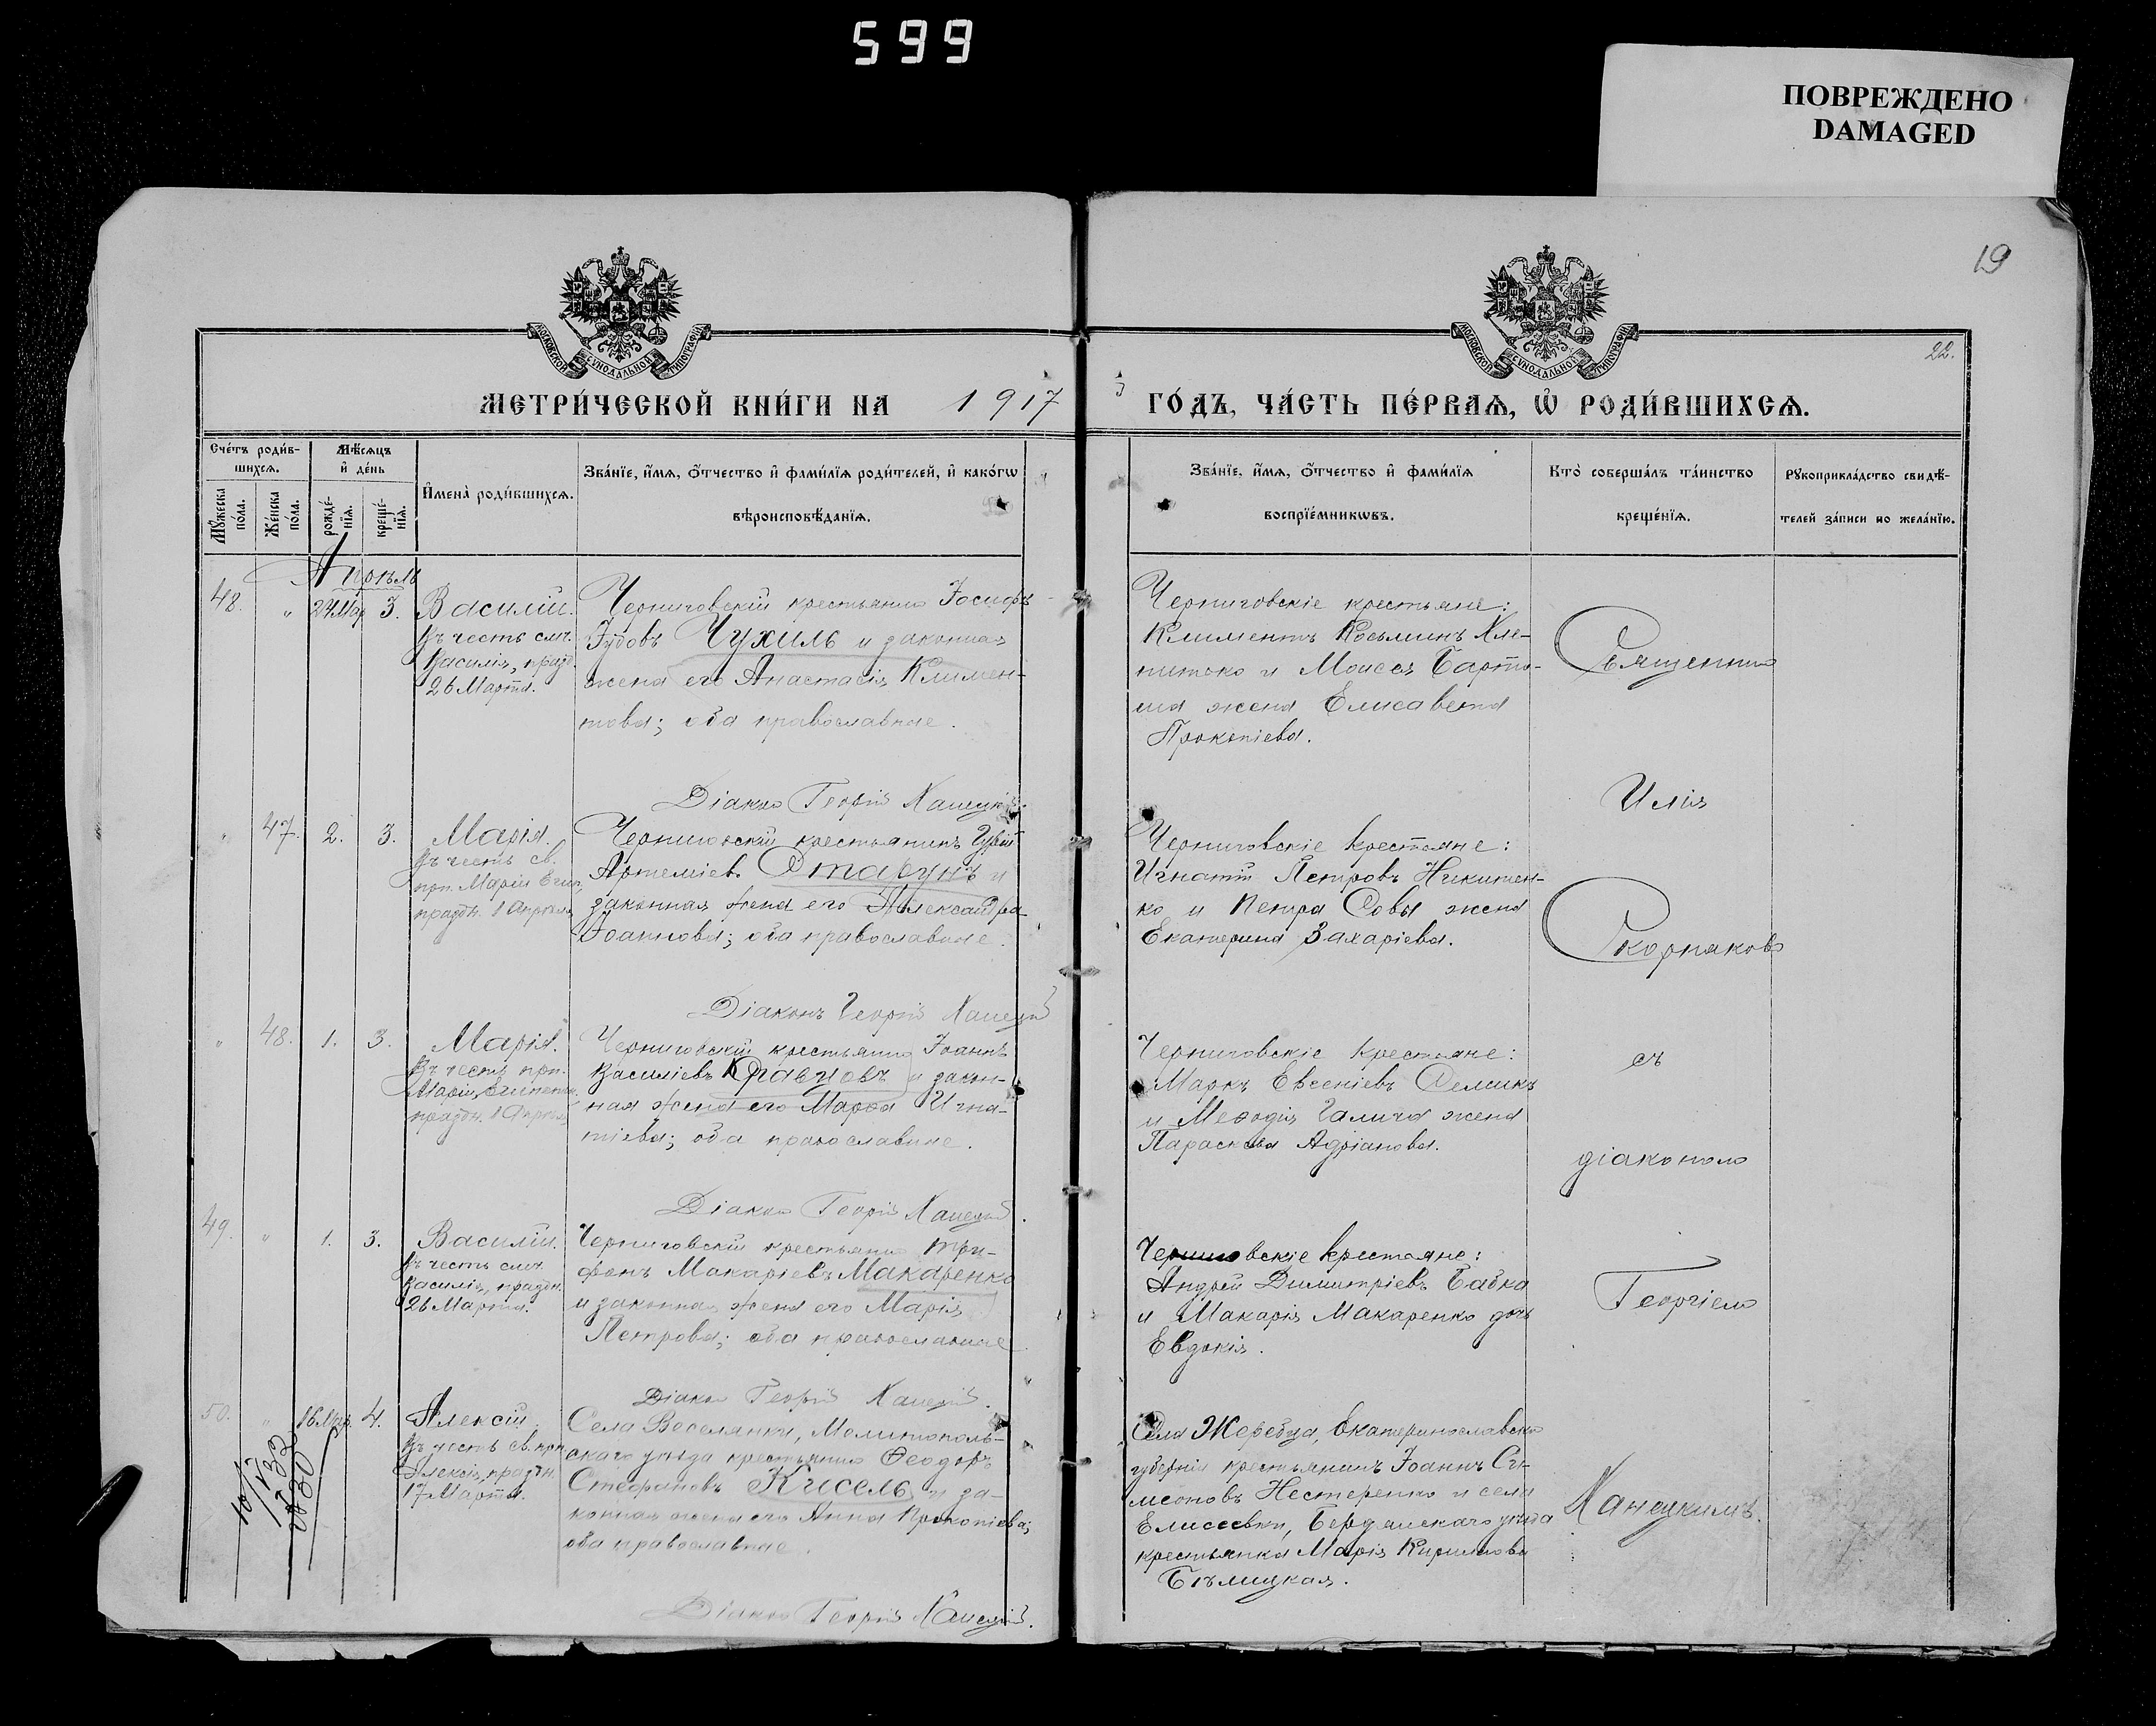 599
ПОВРЕЖДЕНО
DAMAGED
19
22.
МОСКОВСКОЙ СѴНОДАЛЬНОЙ ТИПОГРАФІИ
МОСКОВСКОЙ СѴНОДАЛЬНОЙ ТИПОГРАФІИ
МЕТРИ́ЧЕСКОЙ КНИ́ГИ НА 1917 ГО́ДЪ, ЧА́СТЬ ПЕ́РВАѦ, Ѡ҆ РОДИ́ВШИХСѦ.
Сче́тъ роди́в-
шихсѧ.
Мꙋ́жеска
по́ла.
Же́нска
по́ла.
Мѣ́сѧцъ
и҆ де́нь
рожде́-
нїѧ.
креще́-
нїѧ.
И҆мена̀ роди́вшихсѧ.
Зва́нїе, и҆́мѧ, ѻ҆́тчество и҆ фами́лїѧ роди́телей, и҆ како́гѡ
вѣроисповѣ́данїѧ.
Зва́нїе, и҆́мѧ, ѻ҆́тчество и҆ фами́лїѧ
воспрїе́мникѡвъ.
Кто̀ соверша́лъ та́инство
креще́нїѧ.
Рꙋкоприкла́дство свидѣ́-
телей за́писи по жела́нїю.
Апрѣль
48. " 24 Мар 3. Василій.
Въ честь смч.
Василія, празд.
26 Марта.
Черниговскій крестьянинъ Іосифъ
Іудовъ Чухиль и законная
жена его Анастасія Климен-
това; оба православные.
Діаконъ Георгій Ханецкій.
Черниговскіе крестьяне:
Климентъ Косьминъ Хле-
питько и Моисея Барто-
ша жена Елисавета
Прокопіева.
" 47. 2. 3. Марія.
Въ честь св.
прп. Маріи Егип.,
праздн. 1 Апрѣля
Черниговскій крестьянинъ Гурій
Артеміевъ Стагунъ и
законная жена его Александра
Іоаннова; оба православные.
Діаконъ Георгій Ханецкій
Черниговскіе крестьяне:
Игнатій Петровъ Никитен-
ко и Петра Совы жена
Екатерина Захаріева.
" 48. 1. 3. Марія.
Въ честь прп.
Маріи Египетск.
праздн. 1 Апрѣля
Черниговскій крестьянинъ Іоаннъ
Василіевъ Кравцовъ и закон-
ная жена его Марѳа Игна-
тіева; оба православные.
Діаконъ Георгій Ханецкій.
Черниговскіе крестьяне:
Маркъ Евсеніевъ Семикъ
и Меѳодія Галича жена
Параскева Адріанова.
49. " 1. 3. Василій.
Въ честь смч.
Василія, праздн.
26 Марта.
Черниговскій крестьянинъ Три-
фонъ Макаріевъ Макаренко
и законная жена его Марія
Петрова; оба православные.
Діаконъ Георгій Ханецкій.
Черниговскіе крестьяне:
Андрей Димитріевъ Бабка
и Макарія Макаренко дочь
Евдокія.
50. " 16 Мар. 4. Алексій.
Въ честь св. прп.
Алексія, праздн.
17 Марта.
Села Веселянки, Мелитополь-
скаго уѣзда крестьянинъ Ѳеодоръ
Стефановъ Кисель и за-
конная жена его Анна Прокопіева;
оба православные.
Діаконъ Георгій Ханецкій.
Села Жеребца, Екатеринославской
губерніи крестьянинъ Іоаннъ Си-
меоновъ Нестеренко и села
Елисеевки, Бердянскаго уѣзда
крестьянка Марія Кириллова
Бѣлицкая.
Священникъ
Илія
Скорняковъ
съ
діакономъ
Георгіемъ
Ханецкимъ.